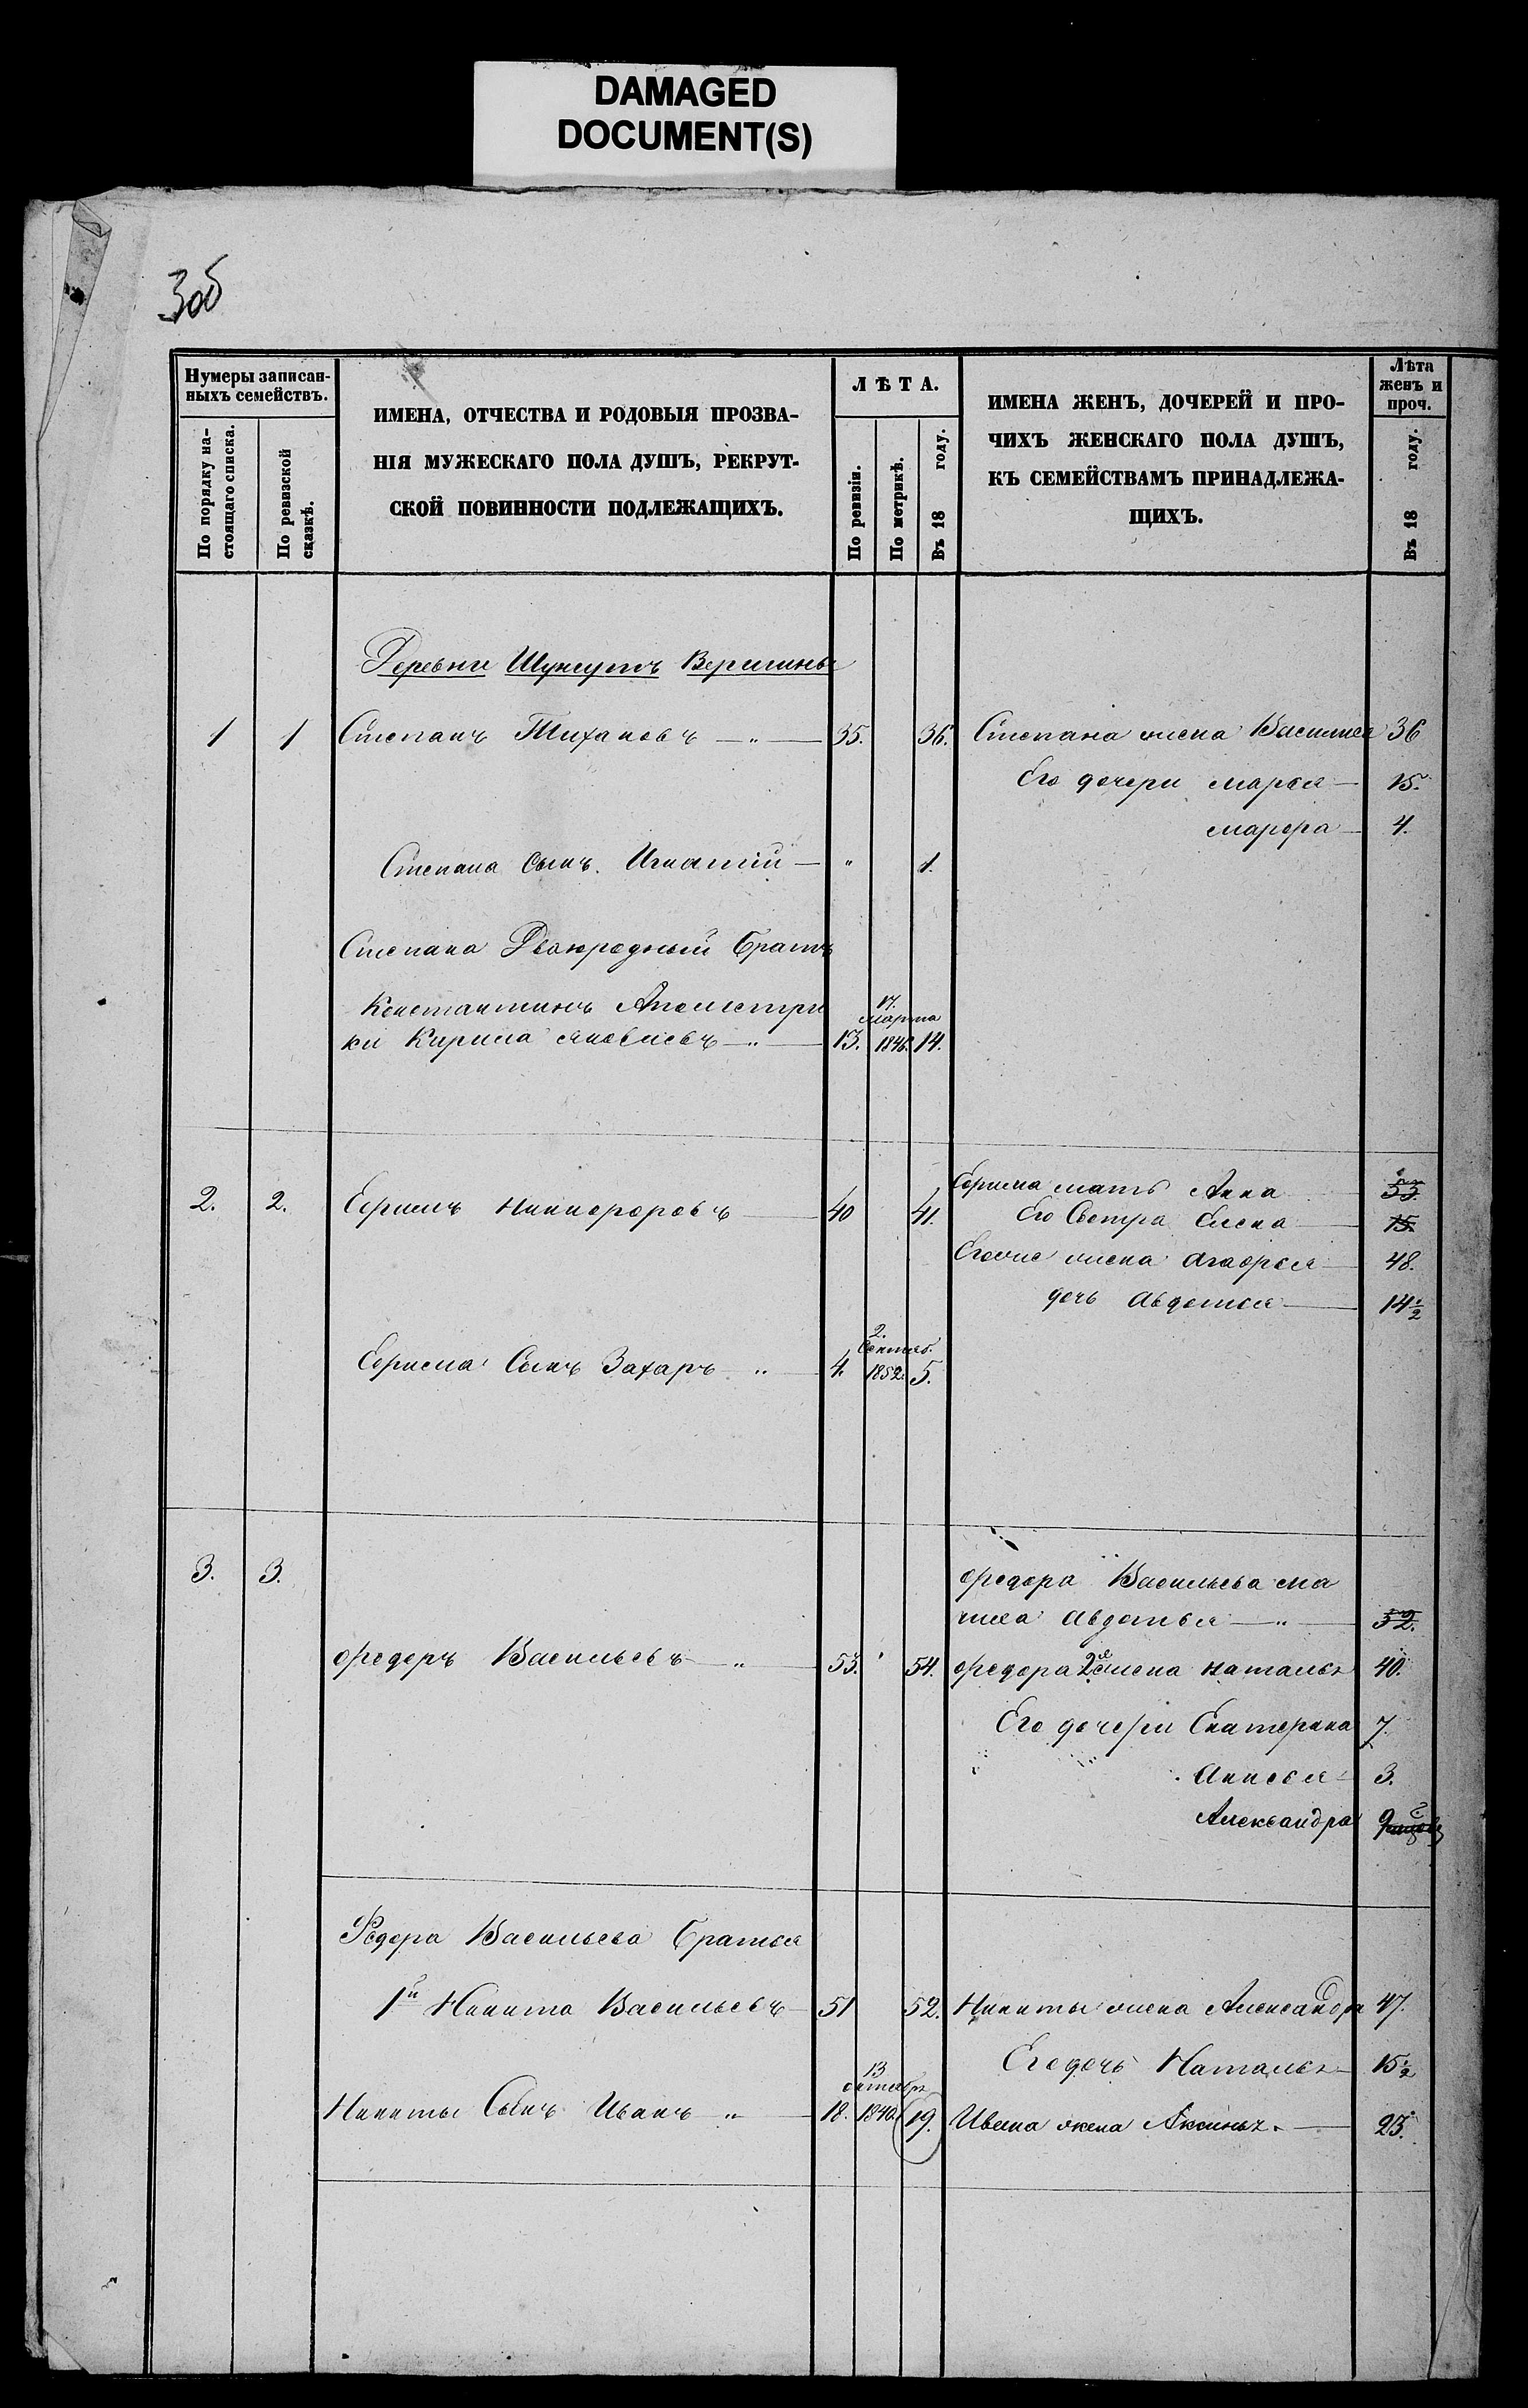 DAMAGED
DOCUMENT(S)
30б
Нумеры записан-
ныхъ семействъ.
По порядку на-
стоящаго списка.
По ревизской
сказкѣ.
ИМЕНА, ОТЧЕСТВА И РОДОВЫЯ ПРОЗВА-
НІЯ МУЖЕСКАГО ПОЛА ДУШЪ, РЕКРУТ-
СКОЙ ПОВИННОСТИ ПОДЛЕЖАЩИХЪ.
ЛѢТА.
По ревизіи.
По метрикѣ.
Въ 18 году.
ИМЕНА ЖЕНЪ, ДОЧЕРЕЙ И ПРО-
ЧИХЪ ЖЕНСКАГО ПОЛА ДУШЪ,
КЪ СЕМЕЙСТВАМЪ ПРИНАДЛЕЖА-
ЩИХЪ.
Лѣта
женъ и
проч.
Въ 18 году.
Деревни Шунгутъ Вершины
1 1 Степанъ Тихановъ — „ — 35. 36. Степана жена Василиса 36
Его дочери марѳа — 15.
марфа — 4.
Степана Сынъ Игнатій — „ 1.
Степана Двоюродный Братъ
Константинъ
17. марта
ки Кирила Яковлевъ — „ — 13. 1846. 14.
2. 2. Ефримъ Никифоровъ — 40 41. Ефрима мать Анна — 55.
Его Сестра Елена — 15.
Егоже жена Агафья — 48.
дочь Авдотья — 14½
2. Сентяб.
Ефрима Сынъ Захаръ „ — 4. 1852. 5.
3. 3. Федора Васильева ма
чиха Авдотья — „ — 52.
Федоръ Васильевъ — „ — 53. 54. Федора 2я жена Наталья 40.
Его дочери Екатерина 7.
Анисья — 3.
Александра 9
Федора Васильева Братья
1й Никита Васильевъ — 51 52. Никиты жена Александра 47.
Его дочь Наталья — 15½
13 октября
Никиты Сынъ Иванъ „ — 18. 1840. 19. Ивана жена Аксинья. — 23.